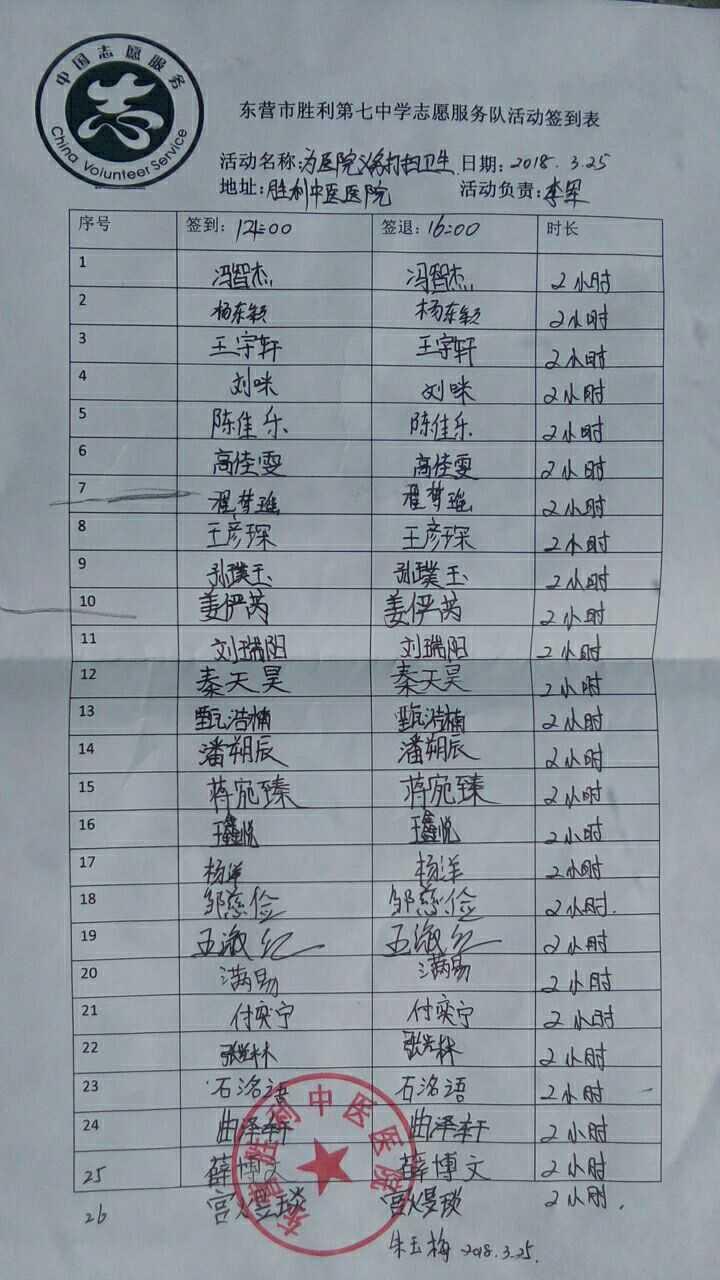 中国志愿服务
志
China Volunteer Service
东营市胜利第七中学志愿服务队活动签到表
活动名称:为医院义务打扫卫生 日期:2018.3.25
地址:胜利中医医院 活动负责:李军
序号 签到:14:00 签退:16:00 时长
1 冯智杰 冯智杰 2小时
2 杨东颖 杨东颖 2小时
3 王宇轩 王宇轩 2小时
4 刘咪 刘咪 2小时
5 陈佳乐 陈佳乐 2小时
6 高佳雯 高佳雯 2小时
7 翟梦瑶 翟梦瑶 2小时
8 王彦琛 王彦琛 2小时
9 孙璞玉 孙璞玉 2小时
10 姜俨芮 姜俨芮 2小时
11 刘瑞阳 刘瑞阳 2小时
12 秦天昊 秦天昊 2小时
13 甄浩楠 甄浩楠 2小时
14 潘朔辰 潘朔辰 2小时
15 蒋宛臻 蒋宛臻 2小时
16 王鑫悦 王鑫悦 2小时
17 杨洋 杨洋 2小时
18 邹慈俭 邹慈俭 2小时.
19 2小时
20 满易 满易 2小时
21 付奕宁 付奕宁 2小时
22 2小时
23 石洺语 石洺语 2小时
24 曲泽轩 曲泽轩 2小时
25 薛博文 薛博文 2小时
26 宫煜琰 宫煜琰 2小时.
东营胜利中医医院
朱玉梅 2018.3.25.